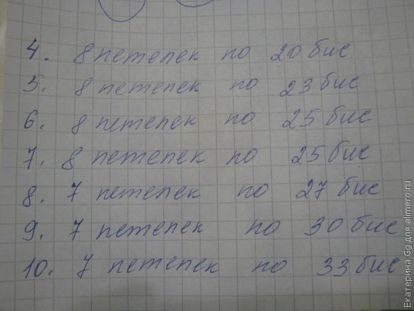 4. 8 петелек по 20 бис
5. 8 петелек по 23 бис
6. 8 петелек по 25 бис
7. 8 петелек по 25 бис
8. 7 петелек по 27 бис
9. 7 петелек по 30 бис
10. 7 петелек по 33 бис
Екатерина Gg для almero.ru